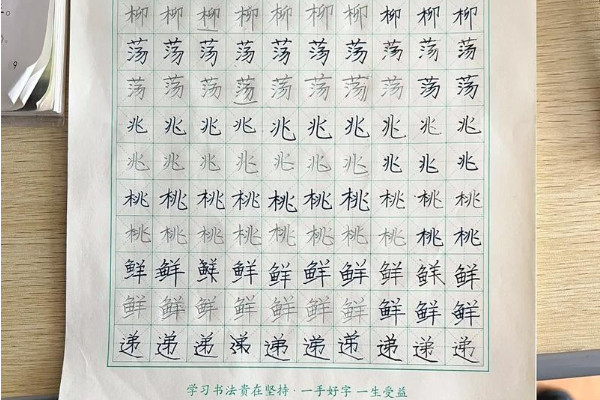 柳柳柳柳柳柳柳柳柳柳
荡荡荡荡荡荡荡荡荡荡
荡荡荡荡荡荡荡荡荡荡
兆兆兆兆兆兆兆兆兆兆
兆兆兆兆兆兆兆兆兆兆
桃桃桃桃桃桃桃桃桃桃
桃桃桃桃桃桃桃桃桃桃
鲜鲜鲜鲜鲜鲜鲜鲜鲜鲜
鲜鲜鲜鲜鲜鲜鲜鲜鲜鲜
递递递递递递递递递递
学习书法贵在坚持·一手好字 一生受益
9